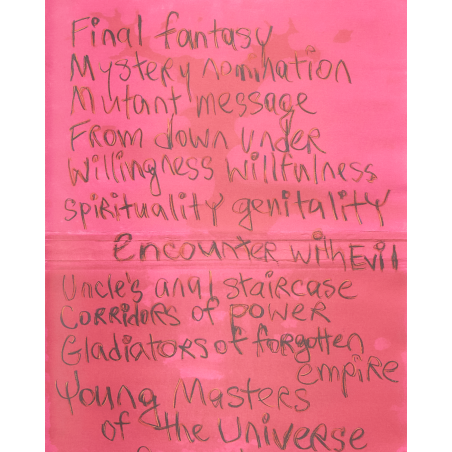 Final fantasy
Mystery nomination
Mutant message
From down under
Willingness Willfulness
spirituality genitality
encounter with Evil
Uncle's anal staircase
Corridors of power
Gladiators of forgotten
empire
Young Masters
of the Universe